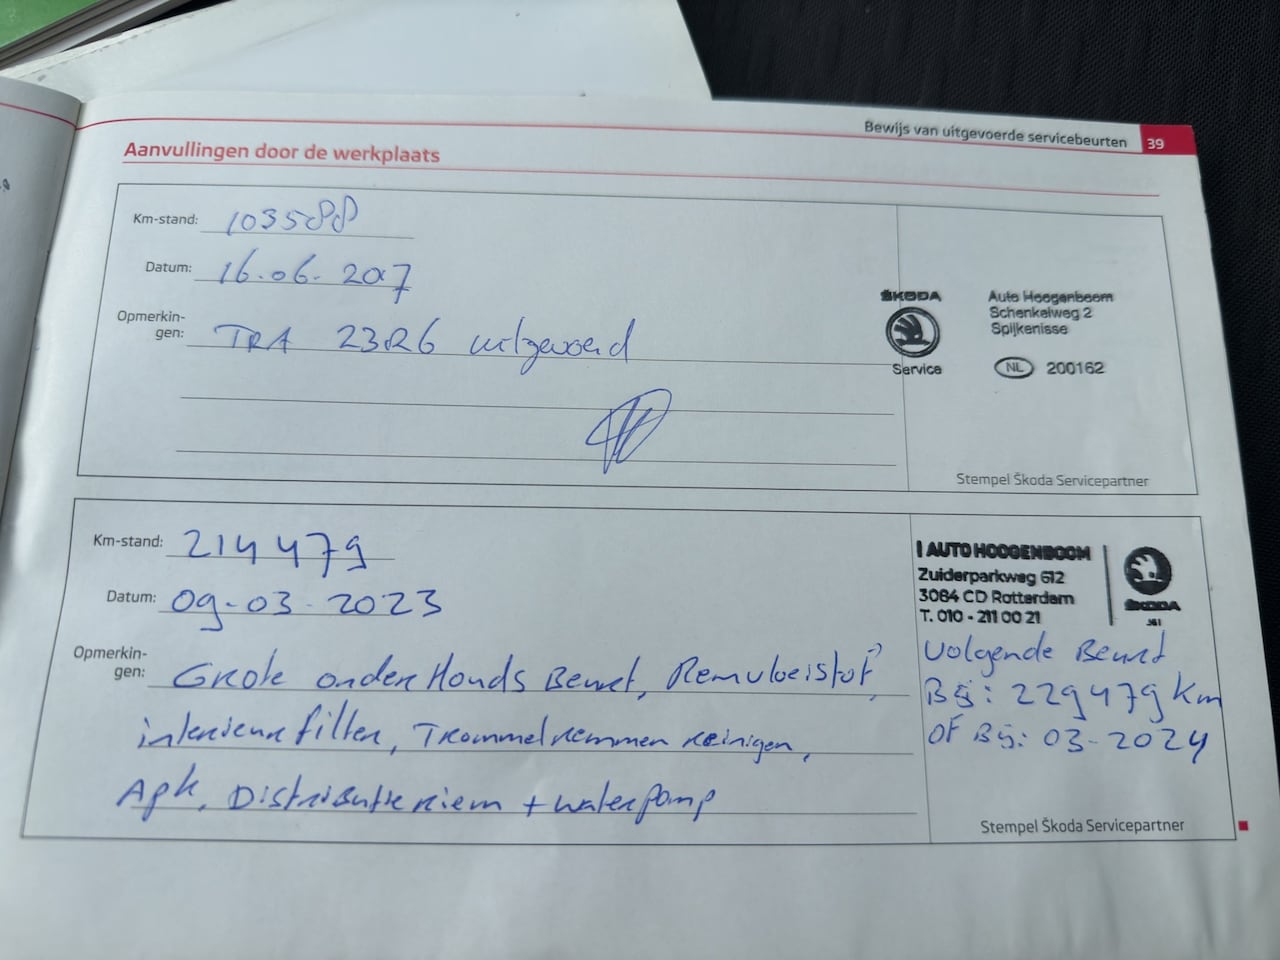 Bewijs van uitgevoerde servicebeurten 39
Aanvullingen door de werkplaats
Km-stand: 103588
Datum: 16.06.2017
Opmerkin-
gen: TRA 23R6 uitgevoerd
ŠKODA
Service
Auto Hoogenboom
Schenkelweg 2
Spijkenisse
NL 200162
Stempel Škoda Servicepartner
Km-stand: 214479
Datum: 09-03-2023
Opmerkin-
gen: Grote onderHouds Beurt, Remvloeistof,
interieurfilter, Trommelremmen reinigen,
Apk, Distributieriem + waterpomp
AUTO HOOGENBOOM
Zuiderparkweg 612
3084 CD Rotterdam
T. 010 - 211 00 21
ŠKODA
Volgende Beurt
Bij: 229479 km
OF Bij: 03-2024
Stempel Škoda Servicepartner